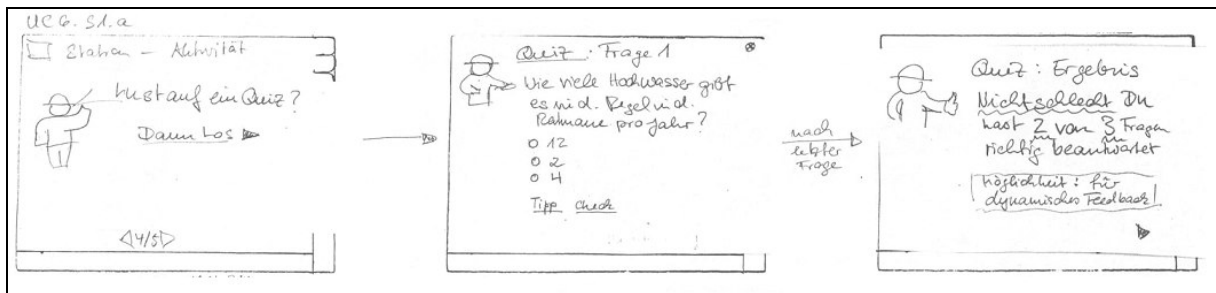 UC 6. S1.a
Station – Aktivität
Lust auf ein Quiz?
Dann Los
4/5
Quiz : Frage 1
Wie viele Hochwasser gibt
es in d. Regel in d.
pro Jahr?
12
2
4
Tipp check
nach
letzter
Frage
Quiz : Ergebnis
Nicht schlecht Du
hast 2 von 3 Fragen
richtig beantwortet
Möglichkeit : für
dynamisches Feedback